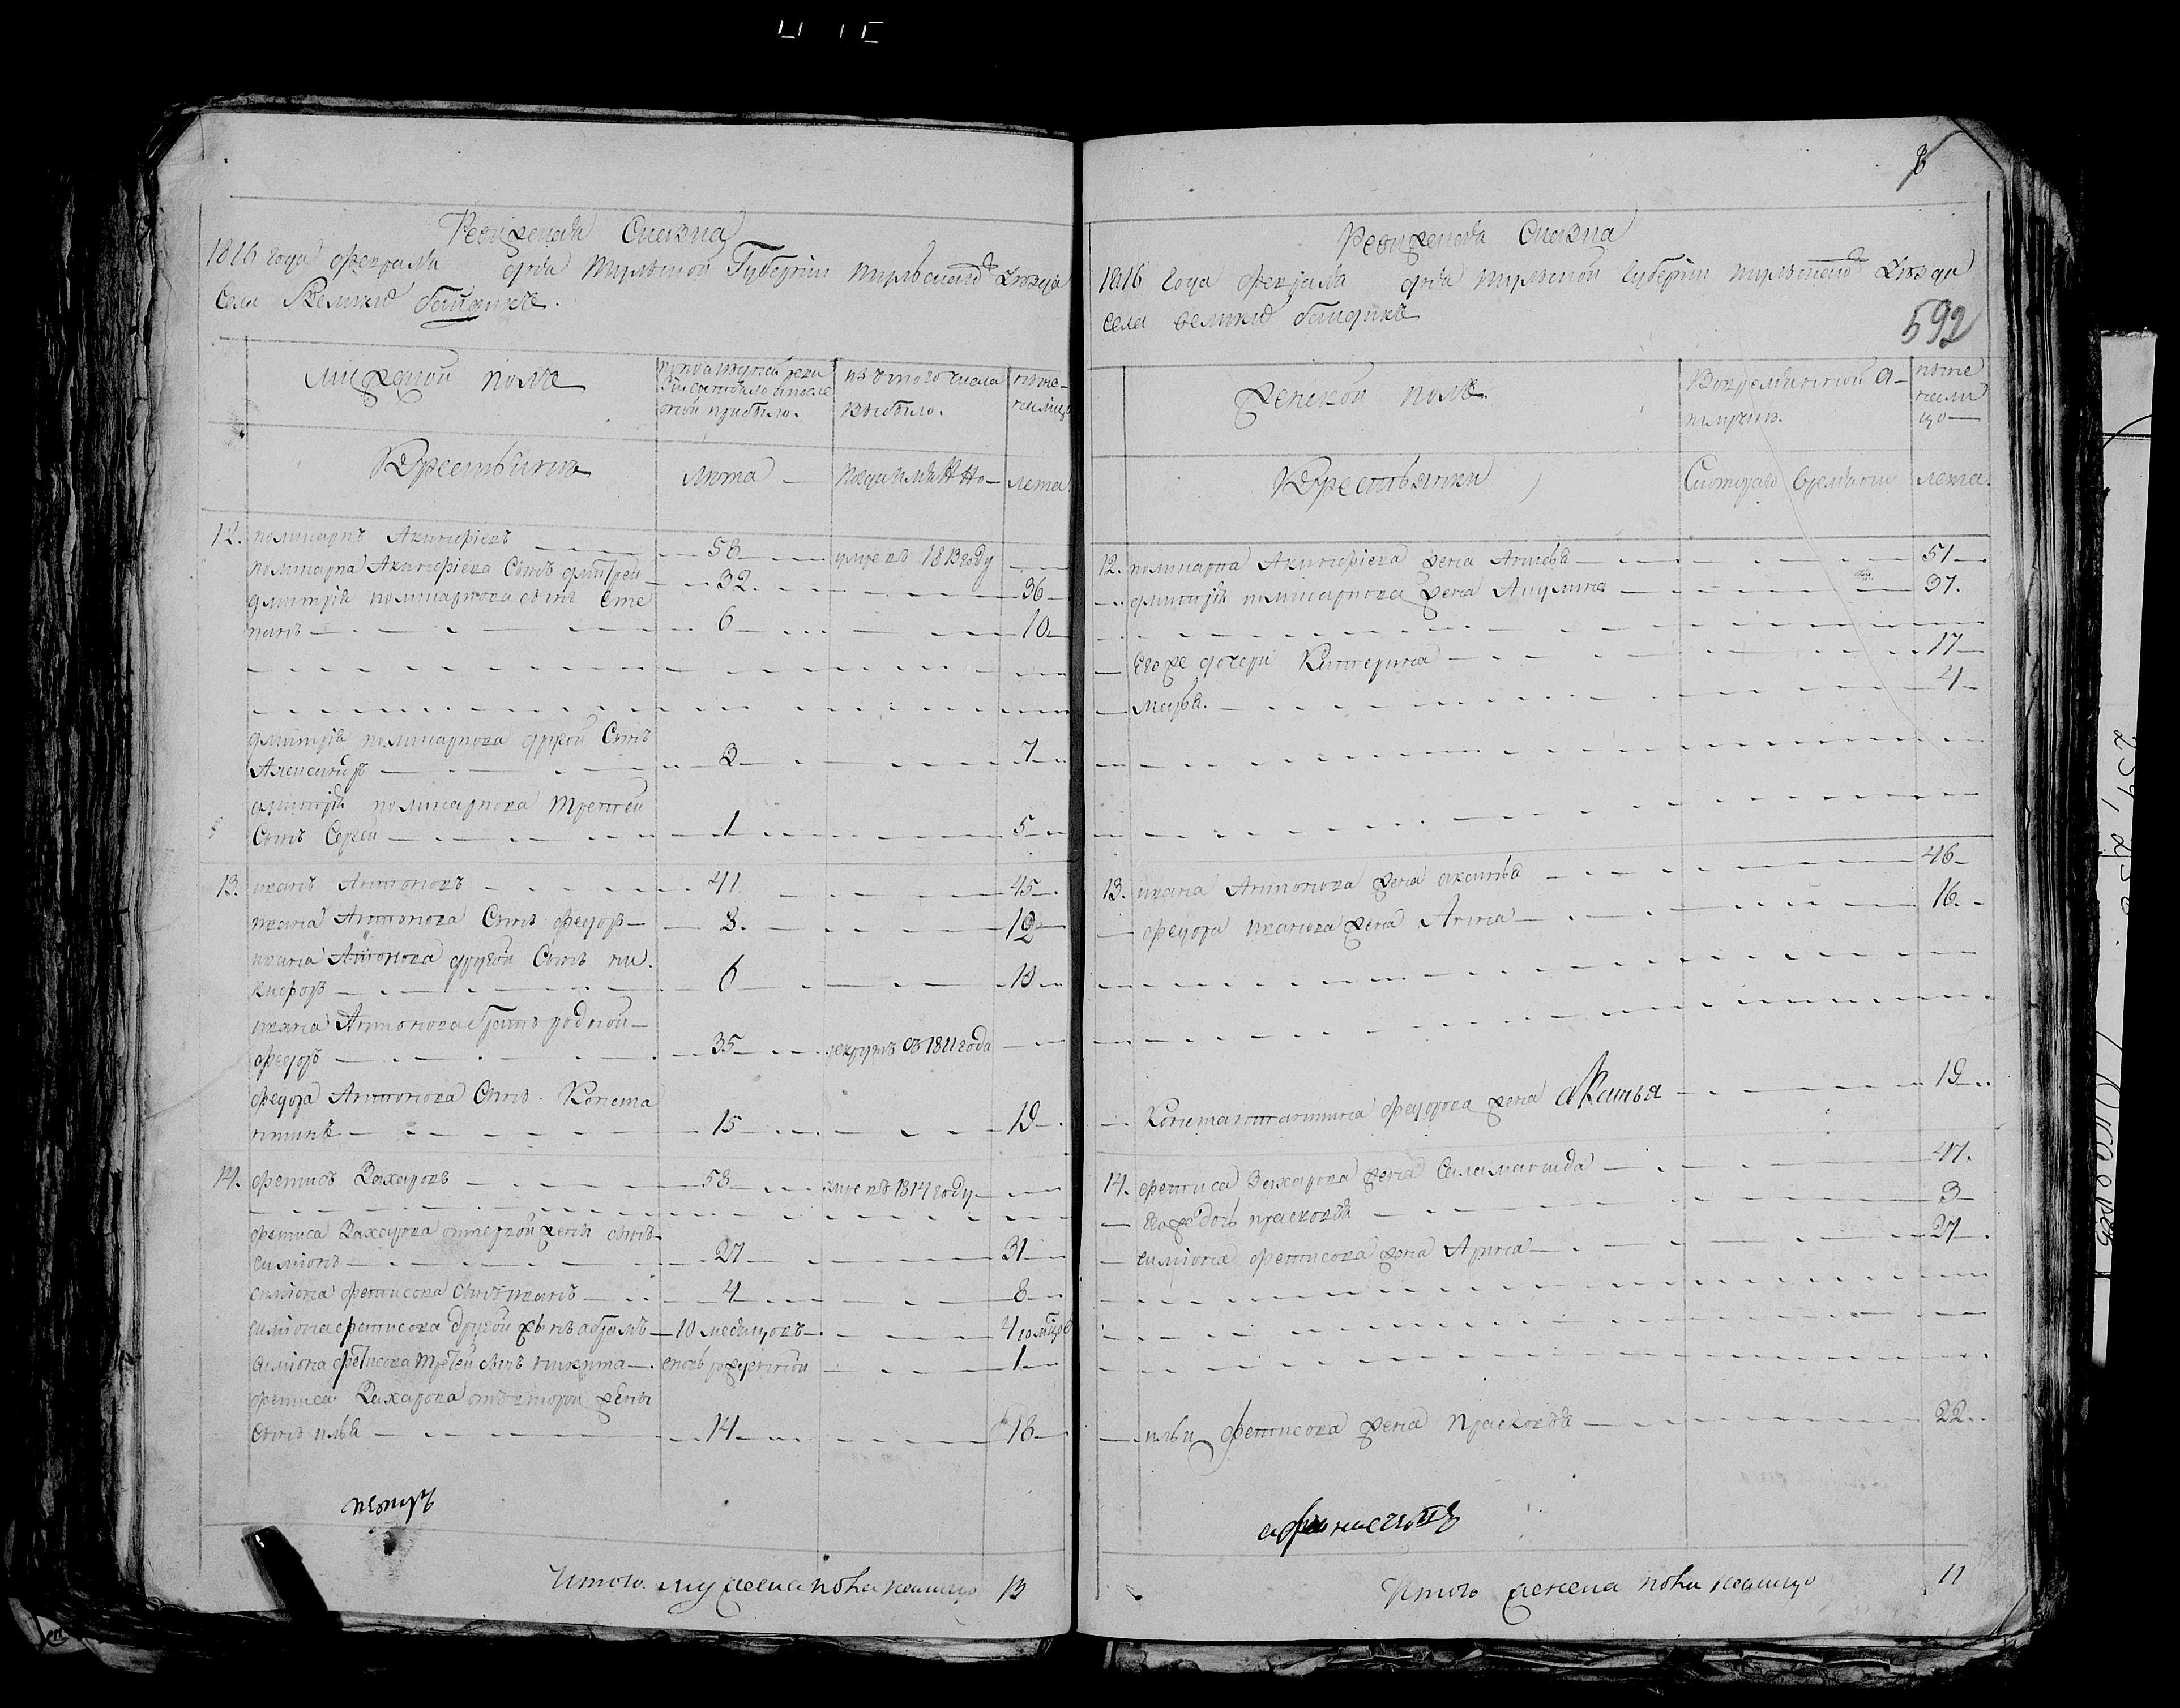 Ревижская Сказка
1816 года февраля дня Тульской Губернии Тульскаго уезда
Села
мужеской полъ
По последней реви
зии состояло и после
оной прибыло.
изъ того числа
выбыло.
ныне
налицо
Крестьяне
Лета
Когда имянно
Лета
12. поликарпъ Акинфіевъ 58 умре въ 1813 году
поликарпа Акинфіева Сынъ дмитрей 32 36
дмитрія поликарпова сынъ Сте
панъ 6 10
дмитрія поликарпова другой Сынъ
Александръ 3 7
дмитрія поликарпова третей
Сынъ Сергей 1 5
13. иванъ Антоновъ 41 45
ивана Антонова Сынъ федоръ 8 12
ивана Антонова другой Сынъ ни
кифоръ 6 10
ивана Антонова братъ родной
федоръ 35 рекрутъ въ 1811 года
федора Антонова Сынъ Конста
нтинъ 15 19
14. фетисъ Захаровъ 58 умре въ 1814 году
фетиса Захарова от первой жены сынъ
симіонъ 27 31
симіона фетисова сынъ иванъ 4 8
симіона фетисова другой сынъ абрамъ 10 месяцовъ 4
симіона фетисова третей сынъ никита вновь рожденной 1
фетиса Захарова отъ второй жены
сынъ илья 14 18
Итого мужеска пола налицо 13
Ревижская Сказка
1816 года февраля дня тульской губерніи тульскаго уезда
села
592
женской полъ
Во временной о
тлучке
ныне
нали
цо
Крестьянки
Съ котораго времяни
лета
12. поликарпа Акинфіева жена 51
дмитрія поликарпова жена Акулина 37
Его же дочери Катерина 17
Марья 4
13. ивана Антонова жена аксинья 46
федора иванова жена Анна 16
Константина федорова жена аксинья 19
14. фетиса Захарова жена Саламанида 47
Его же дочь прасковья 3
симіона фетисова жена Арина 27
ильи фетисова жена прасковья 22
Итого женска пола налицо 11